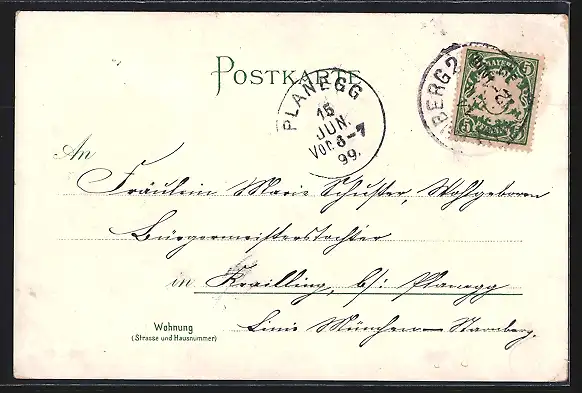 POSTKARTE
PLANEGG
15
JUN.
VOR 6-7
99.
BERG 2
BAYERN
5
5 PFENNIG 5
An
Fräulein Marie Schuster, Wohlgeboren
Bürgermeisterstochter
in Krailling, b/: Planegg
Wohnung
(Strasse und Hausnummer)
Linie München – Starnberg.